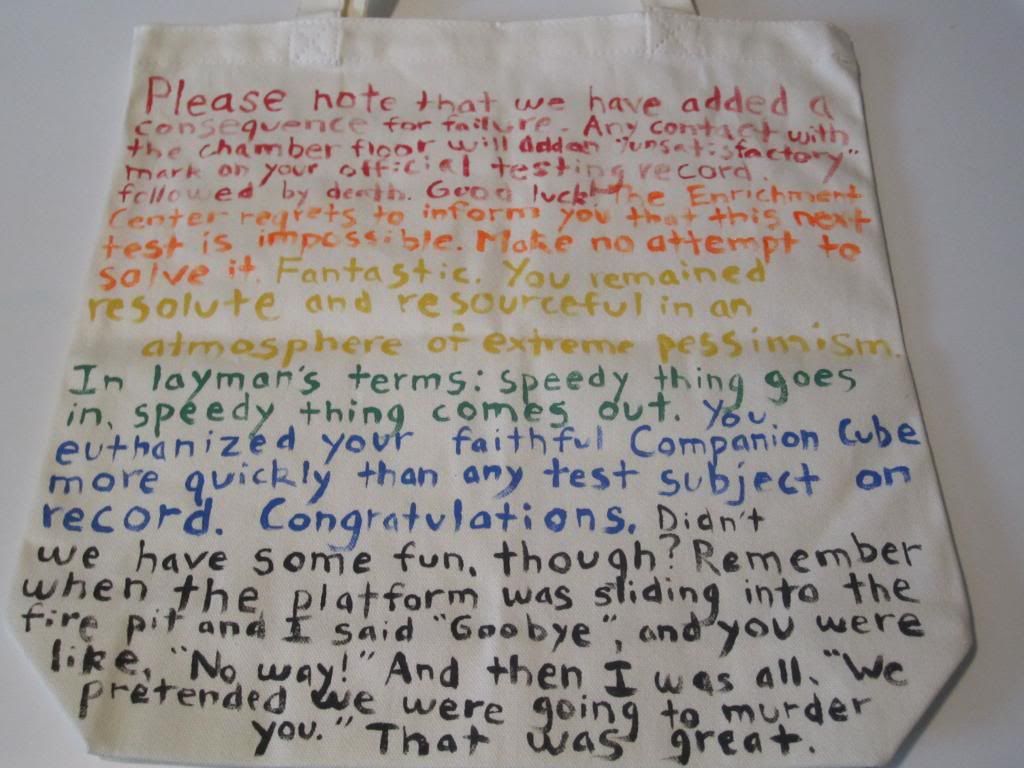 Please note that we have added a
consequence for failure. Any contact with
the chamber floor will add an "unsatisfactory"
mark on your official testing record.
followed by death. Good luck! The Enrichment
Center regrets to inform you that this next
test is impossible. Make no attempt to
solve it. Fantastic. You remained
resolute and resourceful in an
atmosphere of extreme pessimism.
In layman's terms: speedy thing goes
in, speedy thing comes out. You
euthanized your faithful Companion Cube
more quickly than any test subject on
record. Congratulations. Didn't
we have some fun, though? Remember
when the platform was sliding into the
fire pit and I said "Goobye", and you were
like, "No way!" And then I was all, "We
pretended we were going to murder
you." That was great.